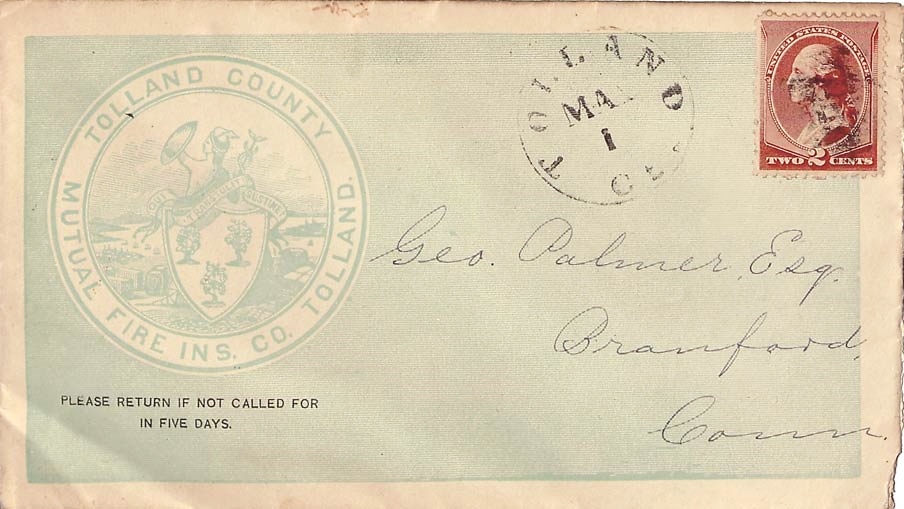 TOLLAND COUNTY
MUTUAL FIRE INS. CO. TOLLAND.
QUI TRANSTULIT SUSTINET
TOLLAND
MA
1
CT.
UNITED STATES POSTAGE
TWO 2 CENTS
Geo. Palmer, Esq.
Branford,
Conn.
PLEASE RETURN IF NOT CALLED FOR
IN FIVE DAYS.